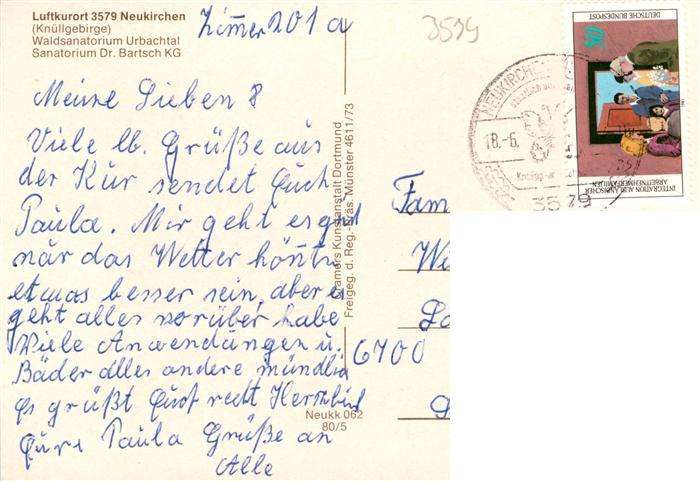 Luftkurort 3579 Neukirchen
(Knüllgebirge)
Waldsanatorium Urbachtal
Sanatorium Dr. Bartsch KG
Zimmer 201 a
3579
Meine Lieben 8
Viele lb. Grüße aus
der Kur sendet Euch
Paula. Mir geht es gut
när das Wetter könnte
etwas besser sein, aber es
geht alles vorüber habe
Viele Anwendungen u.
Bäder alles andere mündlich
Es grüßt Euch recht Herzlich
Eure Paula Grüße an
Alle
Neukk 062
80/5
Cramers Kunstanstalt Dortmund
Freigeg. d. Reg.-Präs. Münster 4611/73
NEUKIRCHEN
18.-6.
Kneipp-
3579
DEUTSCHE BUNDESPOST
50
INTEGRATION AUSLÄNDISCHER
ARBEITNEHMERFAMILIEN
Fam
Wi
6700